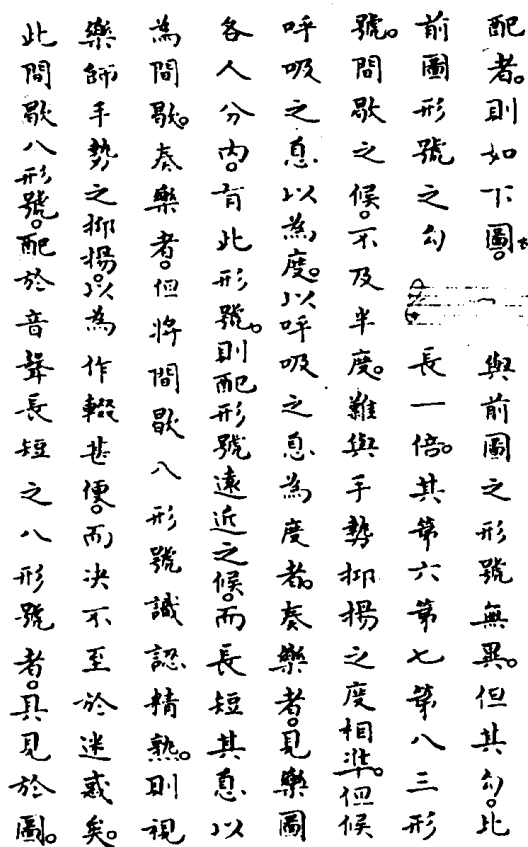 配者。則如下圖。 與前圖之形號無異。但其勾。比
前圖形號之勾 長一倍。其第六第七第八三形
號。間歇之候。不及半度。難與手勢抑揚之度相準。但候
呼吸之息以為度。以呼吸之息為度者。奏樂者。見樂圖
各人分內。有此形號。則配形號遠近之候。而長短其息以
為間歇。奏樂者。但將間歇八形號識認精熟。則視
樂師手勢之抑揚。以為作輟甚便。而決不至於迷惑矣。
此間歇八形號。配於音聲長短之八形號者。具見於圖。